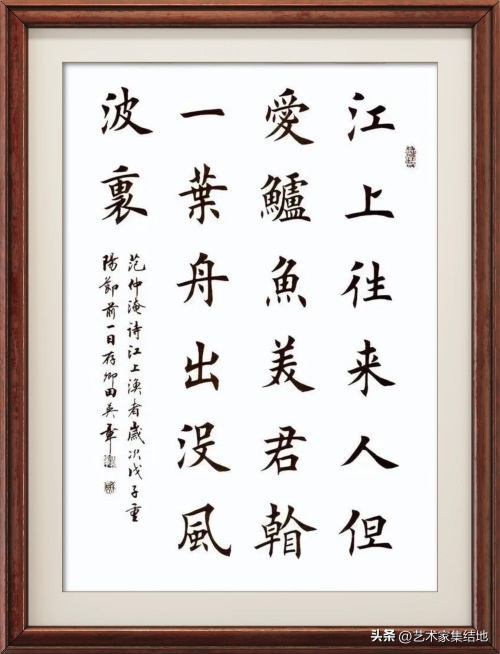 江上往来人但
愛鱸魚美君看
一葉舟出没風
波裏
范仲淹诗江上渔者歲次戊子重
陽節前一日存卿田英章
头条 @艺术家集结地